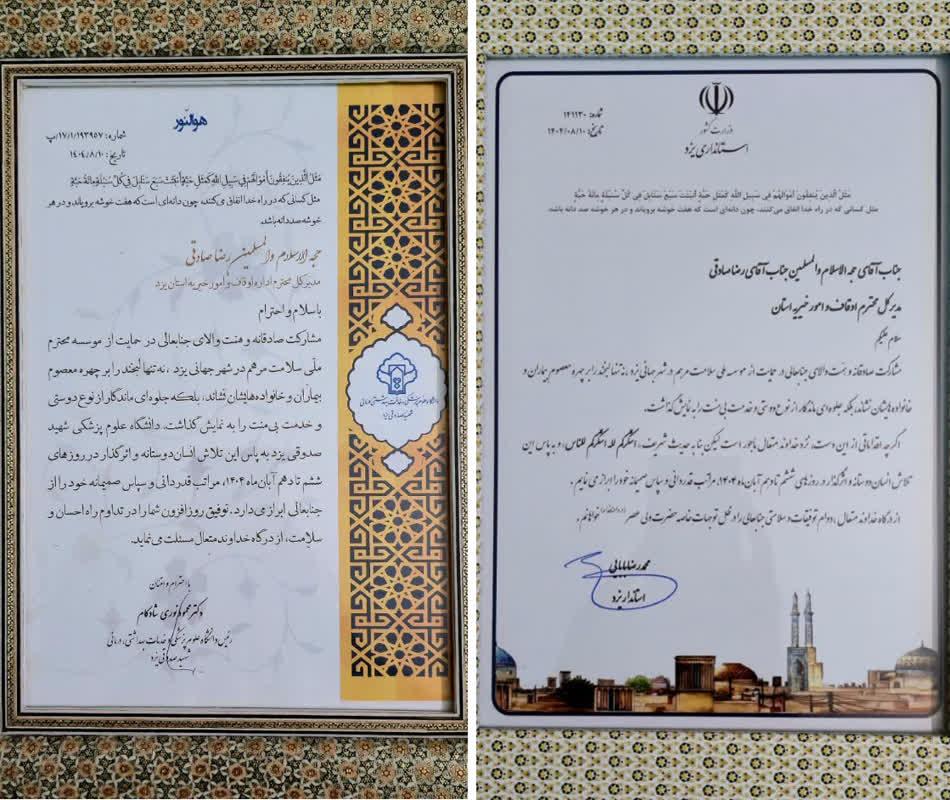 هوالنور
شماره: ۱۷/۱/۱۹۳۹۵۷/پ
تاریخ: ۱۴۰۴/۸/۱۰
مَثَلُ الَّذِينَ يُنفِقُونَ أَمْوَالَهُمْ فِي سَبِيلِ اللَّهِ كَمَثَلِ حَبَّةٍ أَنبَتَتْ سَبْعَ سَنَابِلَ فِي كُلِّ سُنبُلَةٍ مِائَةُ حَبَّةٍ
مثل کسانی که در راه خدا انفاق می‌کنند، چون دانه‌ای است که هفت خوشه برویاند و در هر
خوشه صد دانه باشد.
حجه الاسلام والمسلمین رضا صادقی
مدیرکل محترم اداره اوقاف و امور خیریه استان یزد
باسلام و احترام
مشارکت صادقانه و همت والای جنابعالی در حمایت از موسسه محترم
ملّی سلامت مرهم در شهر جهانی یزد ، نه تنها لبخند را بر چهره معصوم
بیماران و خانواده هایشان نشاند، بلکه جلوه ای ماندگار از نوع دوستی
و خدمت بی منت را به نمایش گذاشت. دانشگاه علوم پزشکی شهید
صدوقی یزد به پاس این تلاش انسان دوستانه و اثرگذار در روزهای
ششم تا دهم آبان ماه ۱۴۰۴، مراتب قدردانی و سپاس صمیمانه خود را از
جنابعالی ابراز می دارد. توفیق روزافزون شما را در تداوم راه احسان و
سلامت، از درگاه خداوند متعال مسئلت می نماید.
با احترام و امتنان
دکتر محمود نوری شادکام
رئیس دانشگاه علوم پزشکی و خدمات بهداشتی، درمانی
شهید صدوقی یزد
شماره: ۱۴۱۱۳۰
تاریخ: ۱۴۰۴/۰۸/۱۰
وزارت کشور
استانداری یزد
مَثَلُ الَّذِينَ يُنفِقُونَ أَمْوَالَهُمْ فِي سَبِيلِ اللَّهِ كَمَثَلِ حَبَّةٍ أَنبَتَتْ سَبْعَ سَنَابِلَ فِي كُلِّ سُنبُلَةٍ مِائَةُ حَبَّةٍ
مثل کسانی که در راه خدا انفاق می‌کنند، چون دانه‌ای است که هفت خوشه برویاند و در هر خوشه صد دانه باشد.
جناب آقای حجه الاسلام والمسلمین جناب آقای رضا صادقی
مدیرکل محترم اوقاف و امور خیریه استان
سلام علیکم
مشارکت صادقانه و همت والای جنابعالی در حمایت از موسسه ملی سلامت مرهم در شهر جهانی یزد، نه تنها لبخند را بر چهره معصوم بیماران و
خانواده هایشان نشاند، بلکه جلوه‌ای ماندگار از نوع دوستی و خدمت بی منت را به نمایش گذاشت.
اگرچه اقداماتی از این دست، نزد خداوند متعال ماجور است لیکن بنا به حدیث شریف، اشکرکم لله اشکرکم للناس، و به پاس این
تلاش انسان دوستانه و اثرگذار در روزهای ششم تا دهم آبان ماه ۱۴۰۴، مراتب قدردانی و سپاس صمیمانه خود را ابراز می نمایم .
از درگاه خداوند متعال ، دوام توفیقات و سلامتی جنابعالی را در ظل توجهات خاصه حضرت ولی عصر خواهانم .
محمدرضا بابایی
استاندار یزد